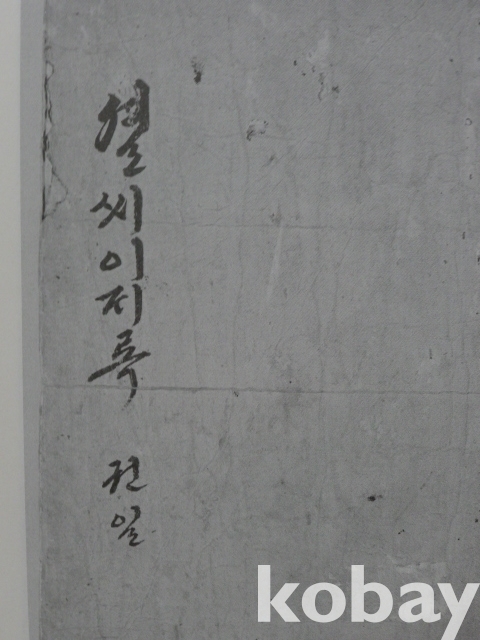 셜씨이ᄃᆡ록 권일
kobay